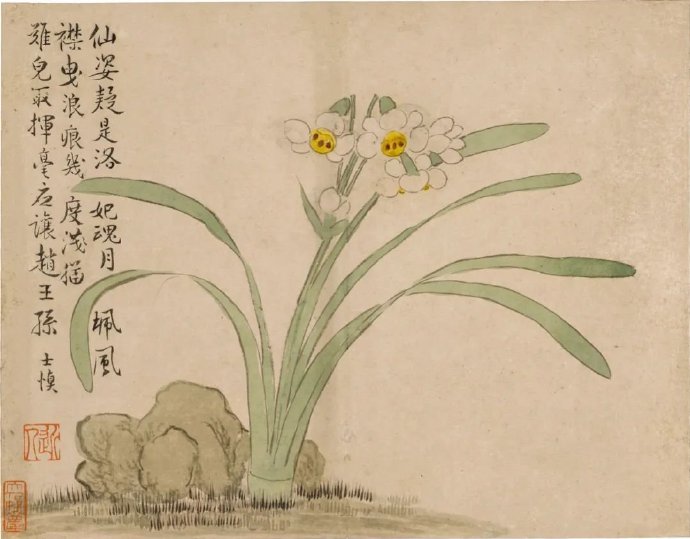 仙姿疑是洛妃魂月珮風
襟曳浪痕幾度淺描
難皃取揮毫應讓趙王孫 士慎